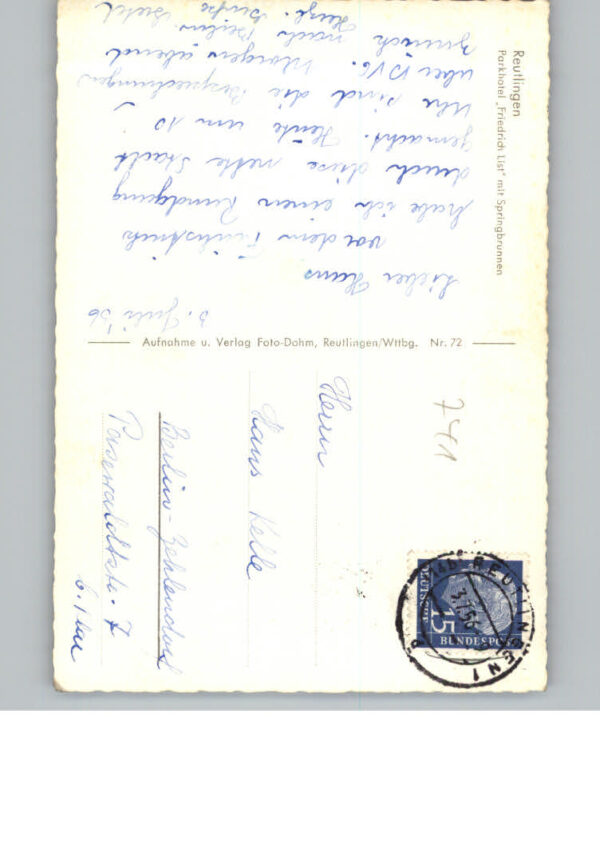 Reutlingen
Parkhotel „Friedrich List" mit Springbrunnen
3. Juli '56
Lieber Hans
vor dem Frühstück
habe ich einen Rundgang
durch diese nette Stadt
gemacht. Heute um 10
Uhr sind die Besprechungen
über
Morgen abend
zurück nach Berlin.
Herzl. Grüße
Aufnahme u. Verlag Foto-Dohm, Reutlingen/Wttbg. Nr. 72
741
Herrn
Hans Kelle
Berlin-Zehlendorf
Pasewaldtstr. 7
(14b) REUTLINGEN 1
3.7.56
15
DEUTSCHE
BUNDESPOST